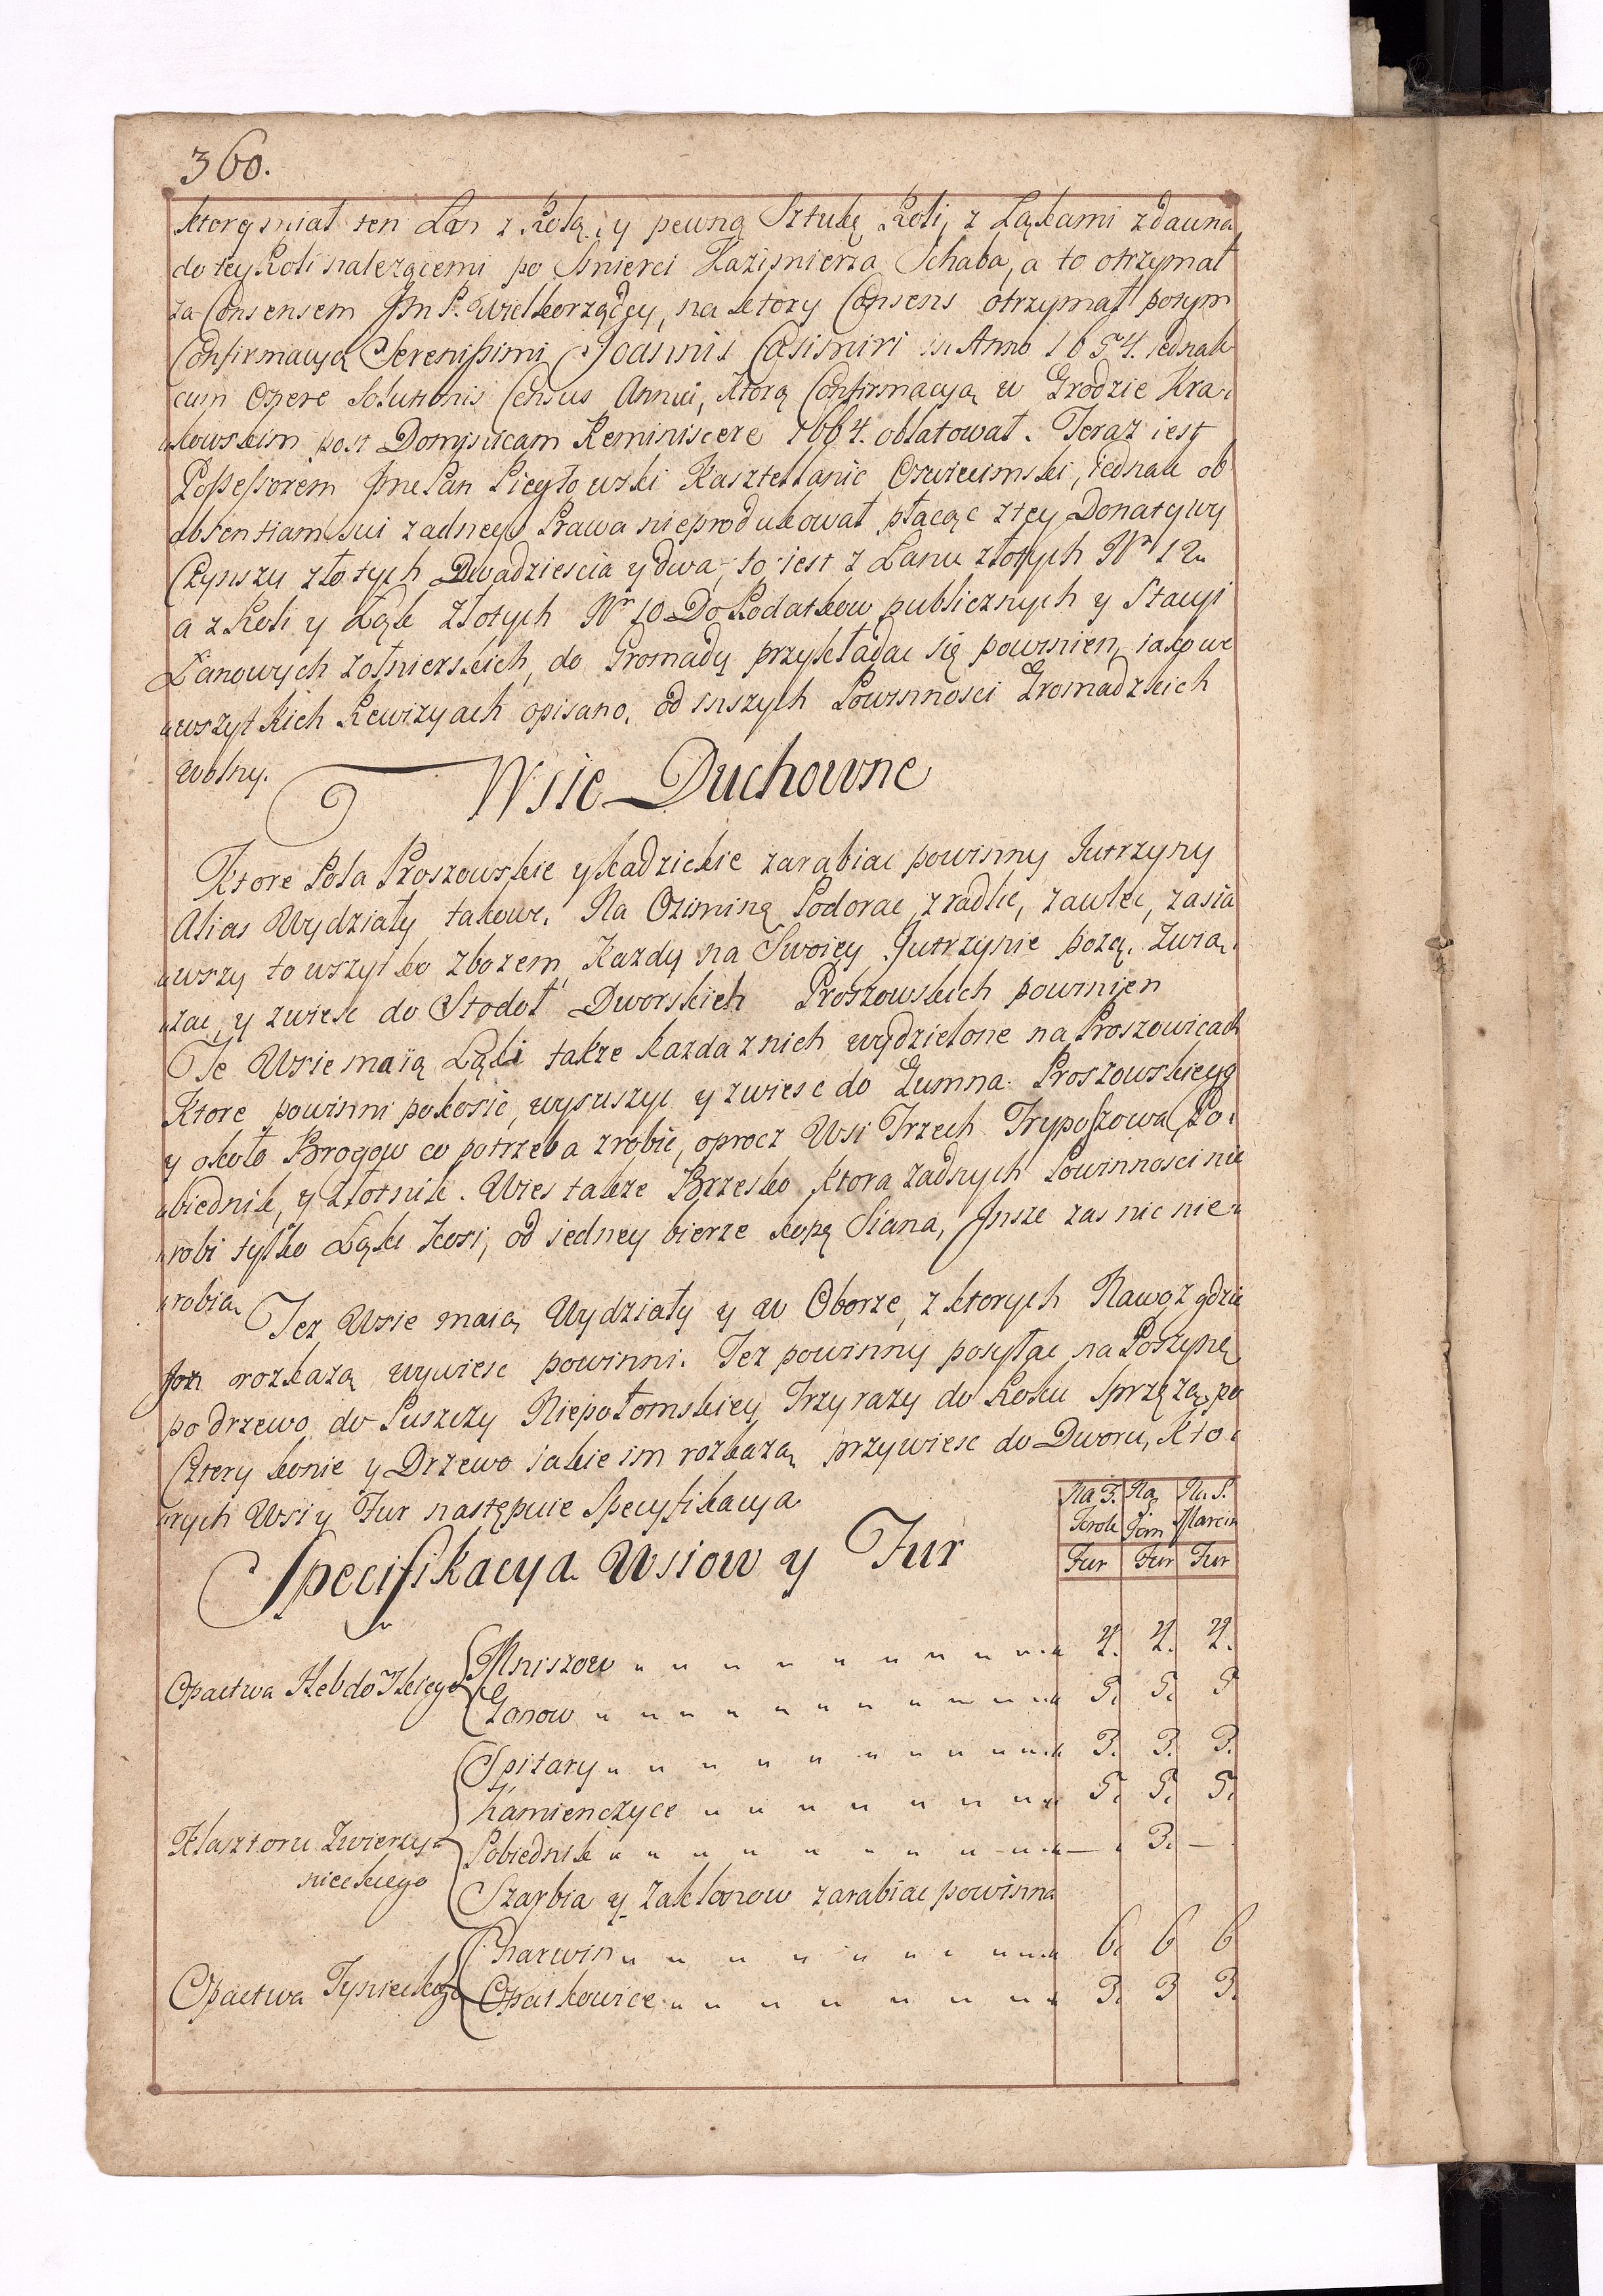 360.
ktory miał ten Łan z Rolą, y pewną Sztukę Roli, z Łąkami zdawna
do tey Roli nalezącemi po Smierci Kazimierza Schaba, a to otrzymał
za Consensem Jm P. Wielkorządcy, na ktory Consens otrzymał potym
Confirmacyą Serenissimi Joannis Casimiri in Anno 1654. iednak
cum Onere Solutionis Census Annui, ktorą Confirmacyą w Grodzie Kra-
kowskim post Dominicam Reminiscere 1664. oblatował. Teraz iest
Possessorem Jme Pan Piegłowski Kasztellanic Oswiecimski, iednak ob
absentiam sui zadnego Prawa nieprodukował płacąc z tey Donatywy
Czynszu złotych Dwadziescia y dwa, to iest z Łanu złotych Nr 12.
a z Roli y Łąk Złotych Nr 10. Do Podatkow publicznych y Stacyi
Łanowych zołnierskich, do Gromady przykładac się powinien, iako we
wszytkich Rewizyach opisano, od inszych Powinnosci Gromadzkich
wolny.
Wsie Duchowne
Ktore Pola Proszowskie y kadzickie zarabiac powinny Jutrzyny
Alias Wydziały takowe. Na Oziminę Podorac, zradlic, zawlec, zasia
wszy to wszytko zbozem Kazdy na Swoiey Jutrzynie pozą, zwią-
zac, y zwiesc do Stodoł Dworskich Proszowskich powinien
Te Wsie maią Łąki takze kazda z nich wydzielone na Proszowicach
Ktore powinni pokosic, wysuszyc y zwiesc do Gumna Proszowskiego
y około Brogow co potrzeba zrobic, oprocz Wsi Trzech Tropiszowa, Po-
biednik, y Złotnik. Wies takze Brzesko ktora zadnych Powinnosci nie
robi tylko Łąki kosi, od iedney bierze kopę Siana, Jnsze zas nic nie
robią
Tez Wsie maią Wydziały y w Oborze, z ktorych Nawoz gdzie
Jm rozkazą wywiesc powinni. Tez powinny posyłac na Poszynę
po drzewo do Puszczy Niepołomskiey Trzy razy do Roku Sprzęzą po
Cztery konie y Drzewo iakie im rozkazą przywiesc do Dworu, Kto-
rych Wsi y Fur następuie Specyfikacya
Na 3. Krole Na S. Jan Na S. Marcin
Specifikacya Wsiow y Fur
Fur Fur Fur
Opactwa Hebdowskiego Mniszow 4. 4. 4.
Gonow 5. 5. 5
Spitary 3. 3. 3.
Kamienczyce 5. 5. 5.
Klasztoru Zwierzy-
nieckiego
Pobiednik — 3. —
Szarbia y Zaklanow zarabiac powinna
Opactwa Tynieckiego Charwin 6. 6 6
Opatkowice 3. 3 3.